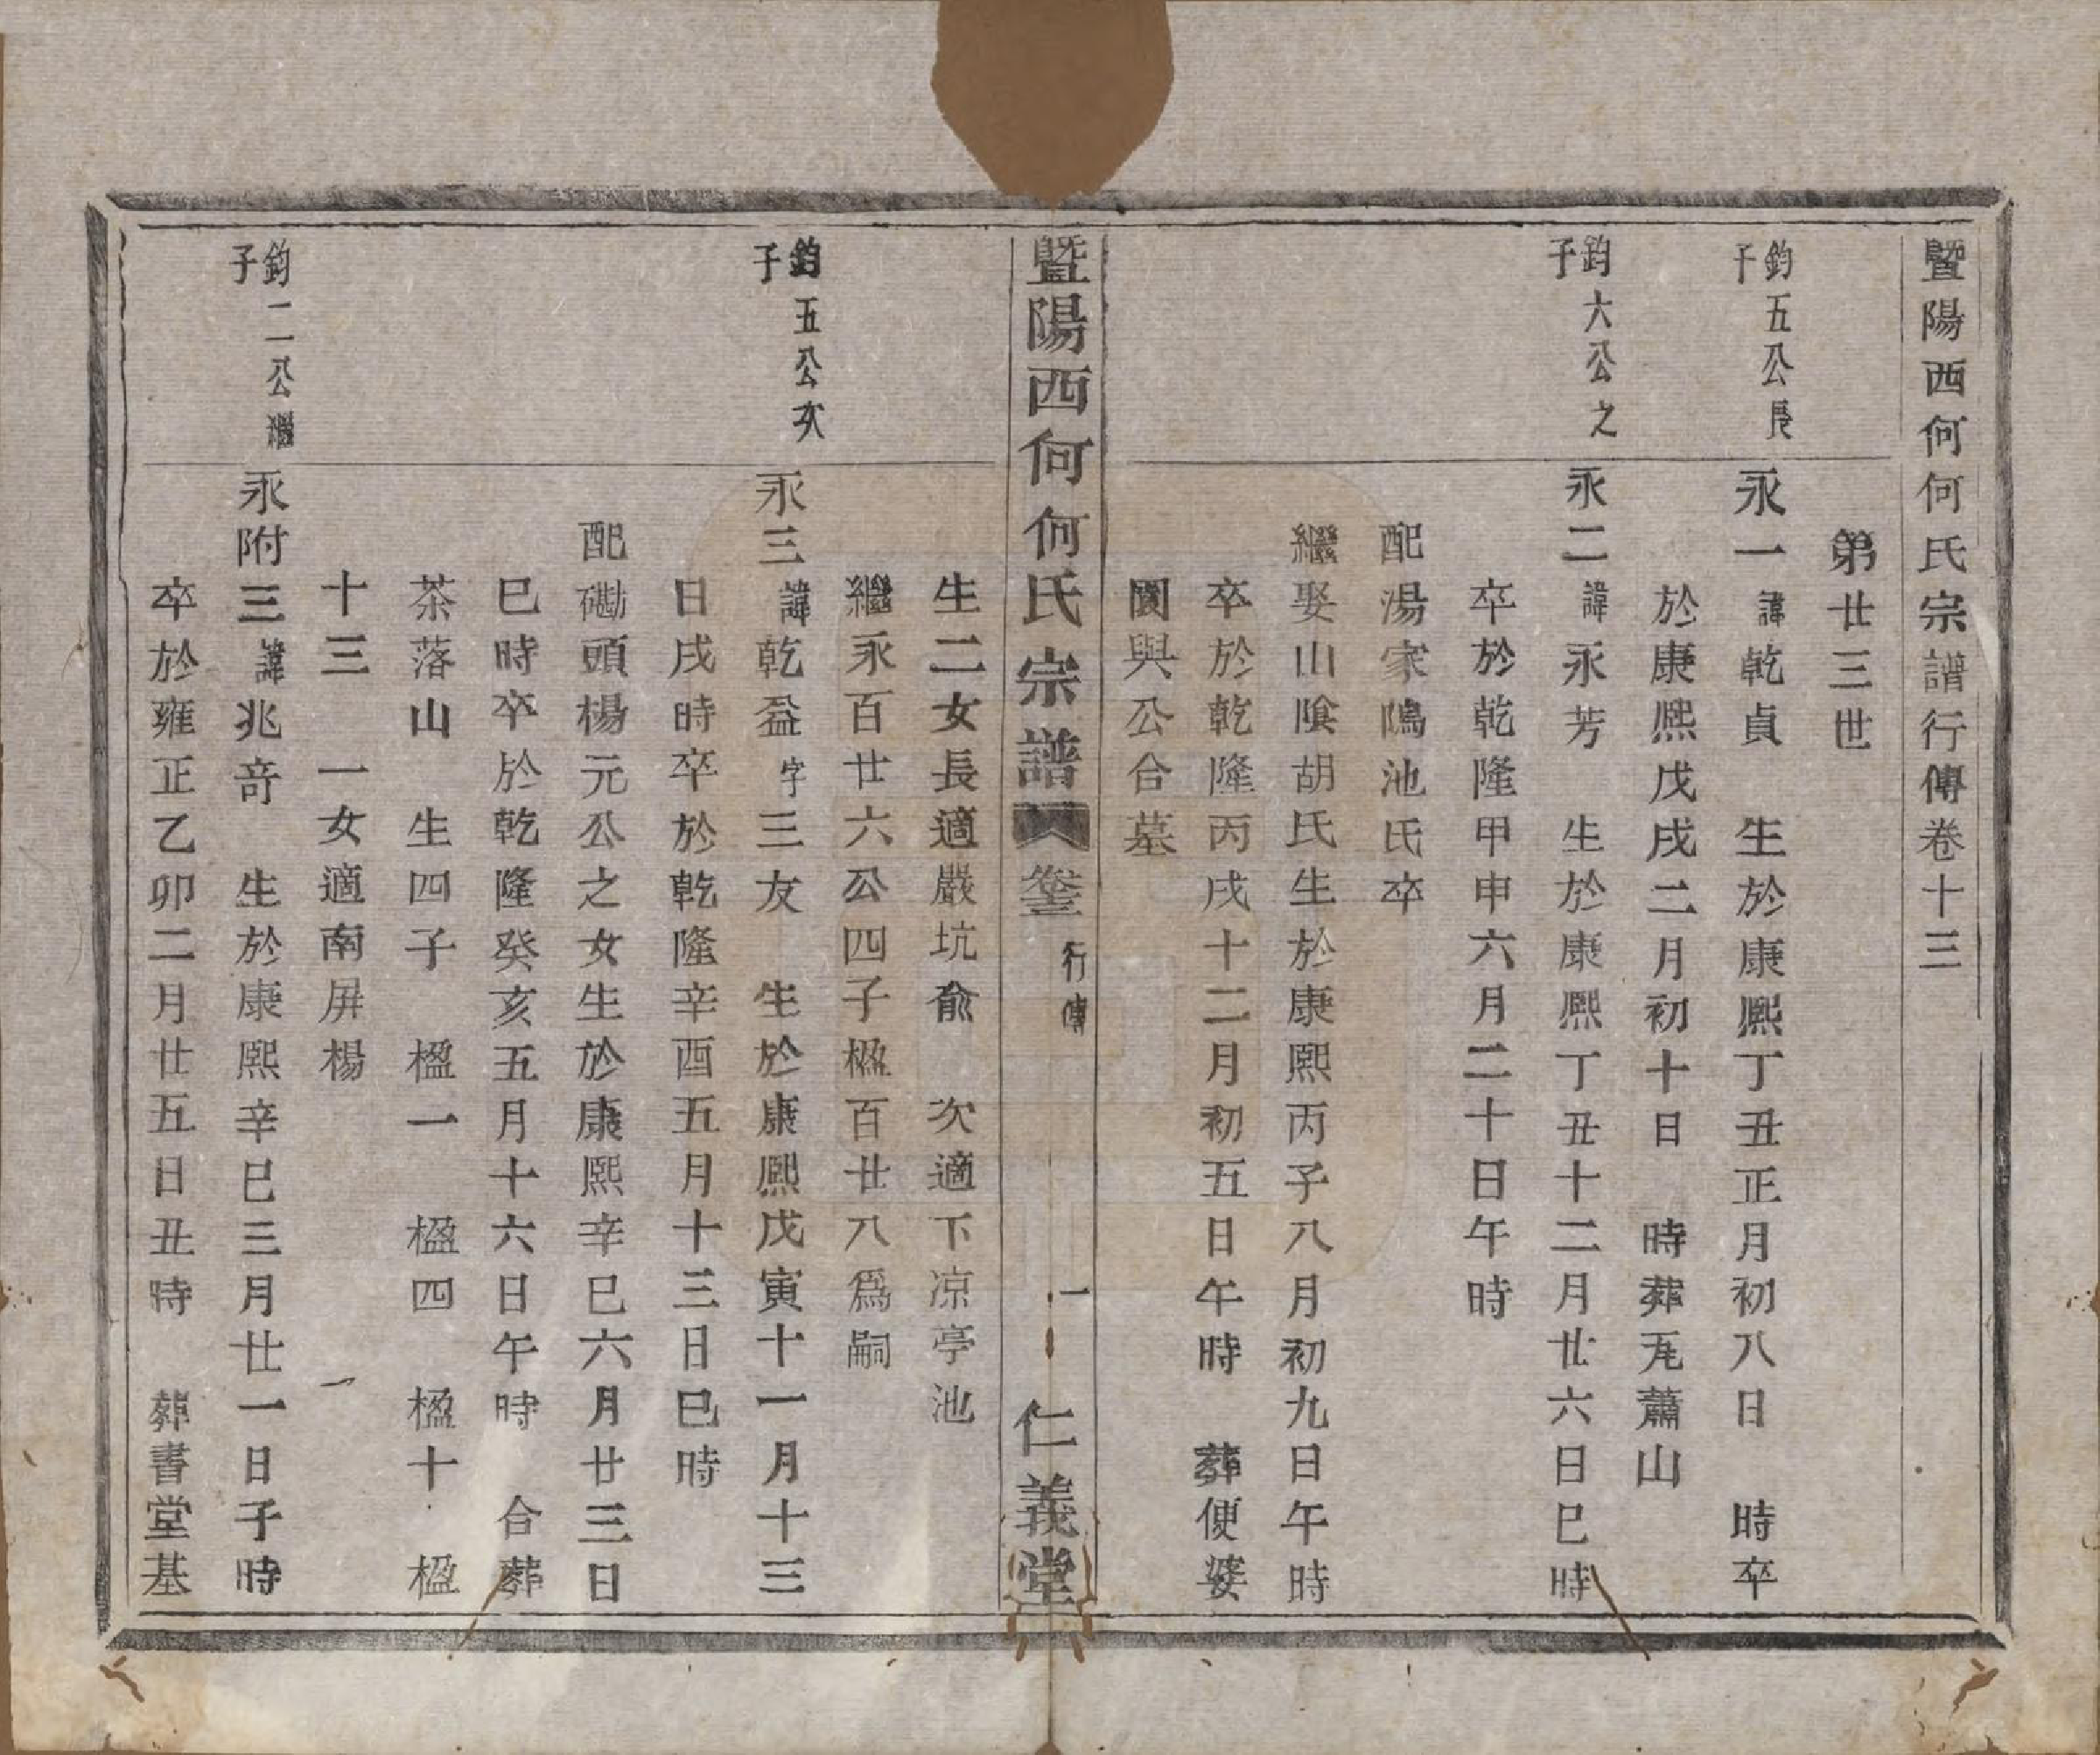 暨陽西何何氏宗譜行傳卷十三
第廿三世
鈞五公長子
永一諱乾貞 生於康熙丁丑正月初八日 時卒
於康熙戊戌二月初十日 時葬𤬪蕭山
鈞六公之子
永二諱永芳 生於康熙丁丑十二月廿六日巳時
卒於乾隆甲申六月二十日午時
配湯家隖池氏卒
繼娶山陰胡氏生於康熙丙子八月初九日午時
卒於乾隆丙戌十二月初五日午時 葬便婆
園與公合墓
暨陽西何何氏宗譜 卷十三 行傳 一 仁義堂
生二女長適嚴坑俞 次適下凉亭池
繼永百廿六公四子楹百廿八爲嗣
鈞五公次子
永三諱乾益字三友 生於康熙戊寅十一月十三
日戌時卒於乾隆辛酉五月十三日巳時
配磡頭楊元公之女生於康熙辛巳六月廿三日
巳時卒於乾隆癸亥五月十六日午時 合葬
茶落山 生四子 楹一 楹四 楹十 楹
十三 一女適南屏楊
鈞二公繼子
永附三諱兆奇 生於康熙辛巳三月廿一日子時
卒於雍正乙卯二月廿五日丑時 葬書堂基